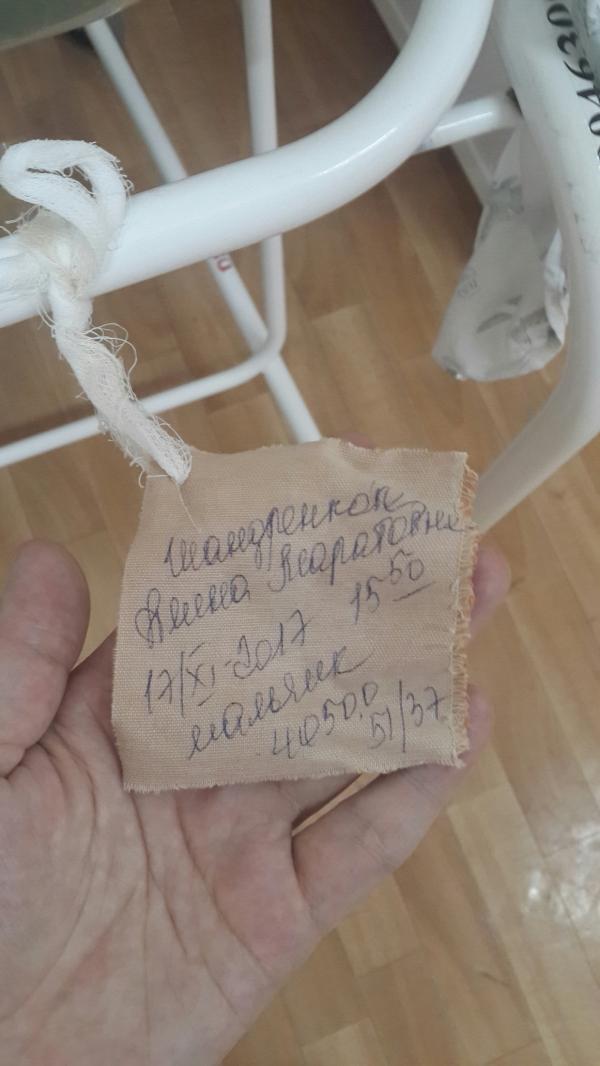 Шандренкок
Алина Маратовна
17/XI-2017 15 50
мальчик
4050,0
51/37